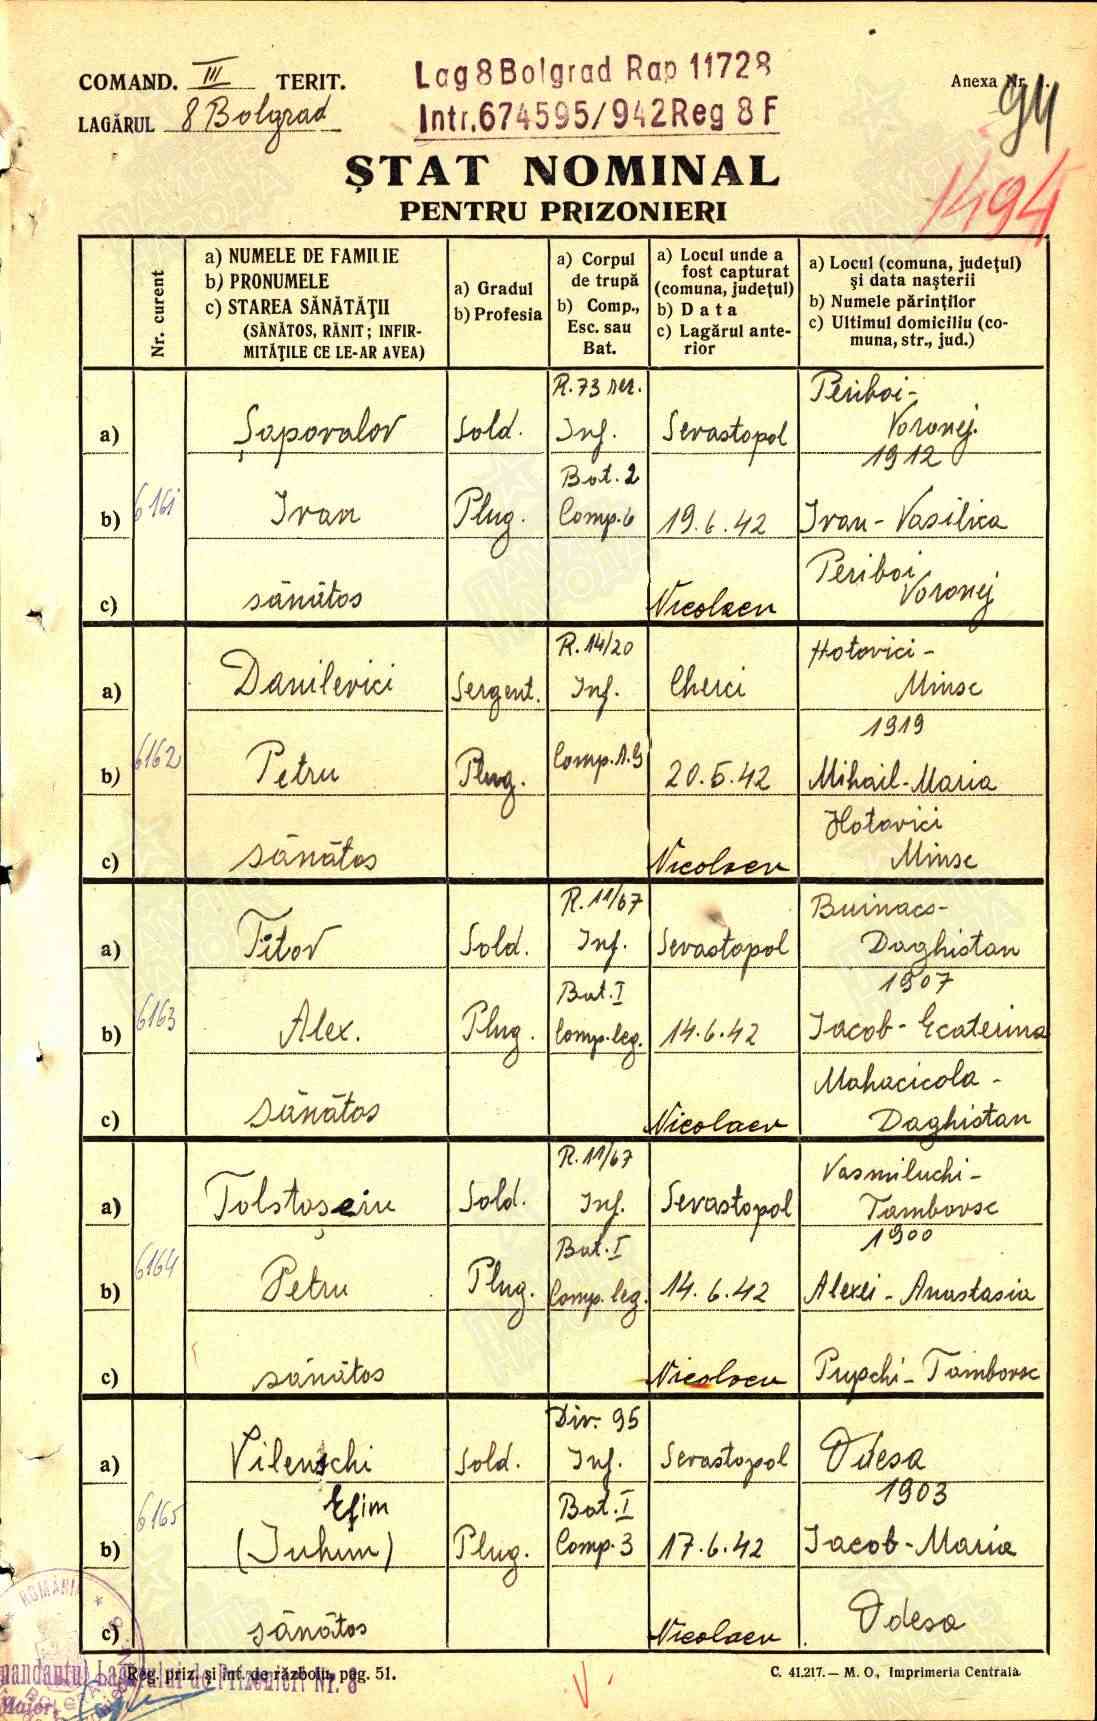 COMAND. III TERIT.
LAGĂRUL 8 Bolgrad
Lag 8 Bolgrad Rap 11728
Intr. 674595/942 Reg 8 F
Anexa Nr.
94
1494
ȘTAT NOMINAL
PENTRU PRIZONIERI
Nr. curent
a) NUMELE DE FAMILIE
b) PRONUMELE
c) STAREA SĂNĂTĂȚII
(SĂNĂTOS, RĂNIT; INFIR-
MITĂȚILE CE LE-AR AVEA)
a) Gradul
b) Profesia
a) Corpul
de trupă
b) Comp.,
Esc. sau
Bat.
a) Locul unde a
fost capturat
(comuna, județul)
b) Data
c) Lagărul ante-
rior
a) Locul (comuna, județul)
și data nașterii
b) Numele părinților
c) Ultimul domiciliu (co-
muna, str., jud.)
6161
a) Șapovalov Sold. R. 73 rez. Inf. Sevastopol Periboi-
Voronej.
1912
b) Ivan Plug. Bat. 2 Comp. 6 19.6.42 Ivan - Vasilica
c) sănătos Nicolaev Periboi
Voronej
6162
a) Danilevici Sergent. R. 14/20 Inf. Cherci Hotovici -
Minsc
1919
b) Petru Plug. 20.5.42 Mihail-Maria
c) sănătos Nicolaev Hotovici
Minsc
6163
a) Titov Sold. R. 11/67 Inf. Sevastopol Buinacs-
Daghistan
1907
b) Alex. Plug. Bat. I Comp. leg. 14.6.42 Iacob - Ecaterina
c) sănătos Nicolaev Mahacicola -
Daghistan
6164
a) Sold. R. 11/67 Inf. Sevastopol Vasmiluchi-
Tambovsc
1900
b) Petru Plug. Bat. I Comp. leg. 14.6.42 Alexei - Anastasia
c) sănătos Nicolaev Pupschi - Tambovsc
6165
a) Vilenschi Sold. Div. 95 Inf. Sevastopol Odesa
1903
Efim
b) (Iuhim) Plug. Bat. I Comp. 3 17.6.42 Iacob-Maria
c) sănătos Nicolaev Odesa
ROMÂNIA
mandantul Lagărului de Prizonieri Nr. 8
Major,
Reg. priz. și int. de războiu, pag. 51.
C. 41.217. — M. O., Imprimeria Centrală.